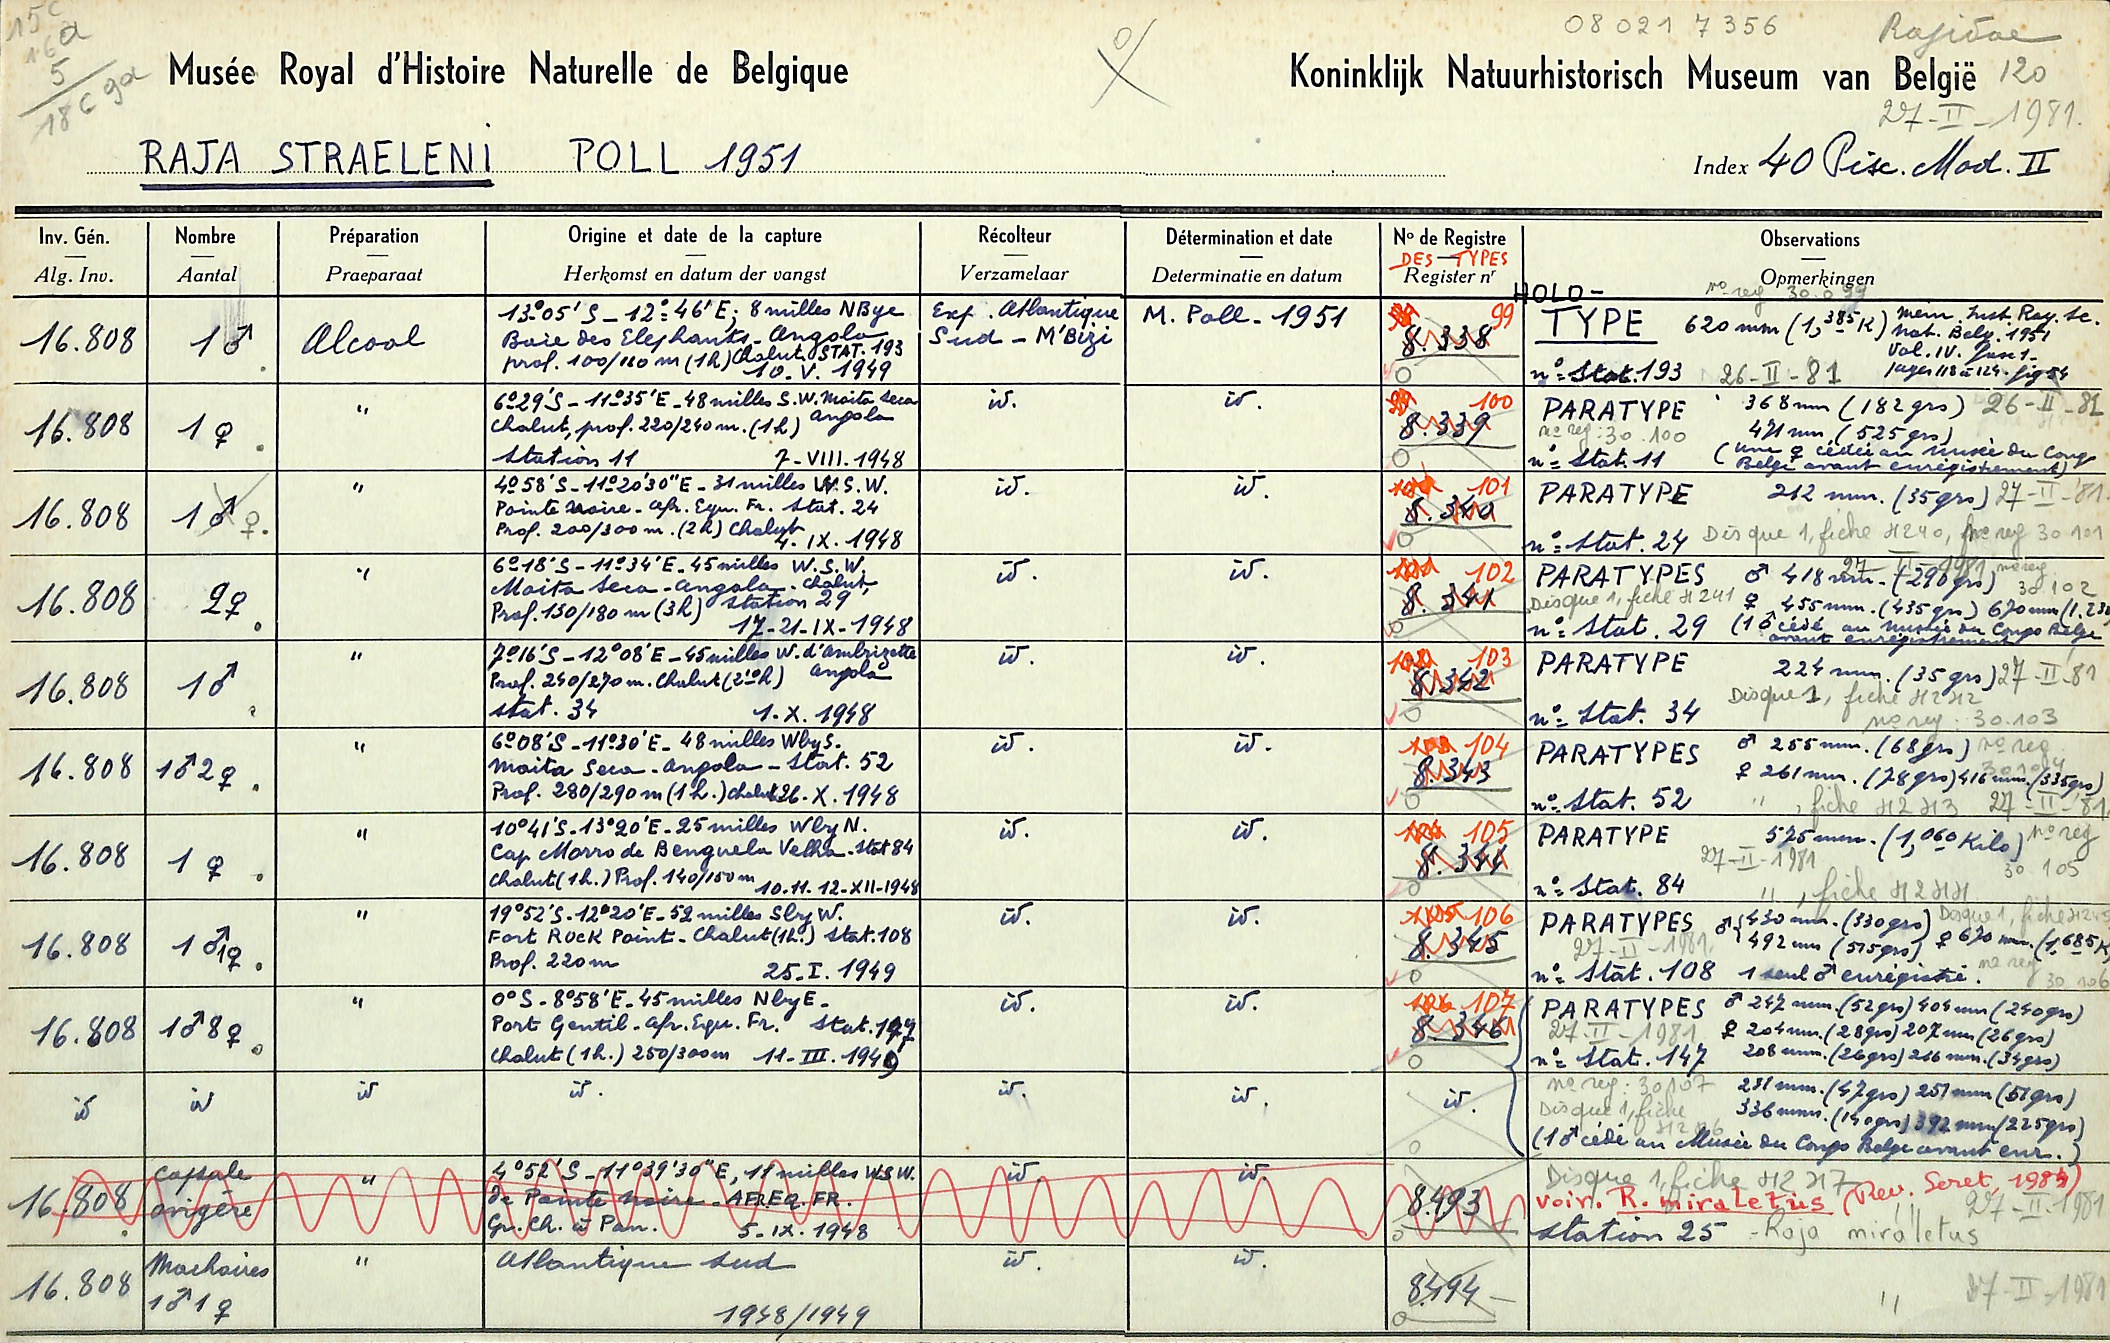 15c
16a
5
18c ga
08021 7356
Rajidae
Musée Royal d'Histoire Naturelle de Belgique
Koninklijk Natuurhistorisch Museum van België 120
27-II-1981.
RAJA STRAELENI POLL 1951
Index 40 Pisc. Mod. II
Inv. Gén. Nombre Préparation Origine et date de la capture Récolteur Détermination et date No de Registre Observations
DES TYPES
Alg. Inv. Aantal Praeparaat Herkomst en datum der vangst Verzamelaar Determinatie en datum Register nr Opmerkingen
16.808 1♂ Alcool
13°05'S - 12°46'E; 8 milles NBye
Baie des Elephants - Angola
prof. 100/110 m (1h) Chalut STAT. 193
10.V.1949
Exp. Atlantique
Sud - M'Bizi
M. Poll - 1951
99
8.338
HOLO-
no reg 30.099
TYPE 620 mm (1,385K) Mém. Inst. Roy. Sc.
Nat. Belg. 1951
Vol. IV. Fasc 1-
pages 118 à 124 - fig 54
no= Stat. 193 26-II-81
16.808 1♀ "
6°29'S - 11°35'E - 48 milles S.W. Moita Seca
Chalut, prof. 220/240 m. (1h) Angola
Station 11 7-VIII.1948
id. id.
100
8.339
PARATYPE 368 mm (182 grs) 26-II-81
no reg: 30.100 471 mm (525 grs)
no= Stat. 11 (une ♀ cédée au musée du Congo
Belge avant enregistrement)
16.808 1♂ ♀. "
4°58'S - 11°20'30"E - 31 milles W.S.W.
Pointe Noire - Afr. Equ. Fr. Stat. 24
Prof. 200/300 m. (2h) Chalut
4.IX.1948
id. id.
101
8.340
PARATYPE 212 mm. (35 grs) 27-II-81
no= Stat. 24 Disque 1, fiche H240, no reg 30 101
16.808 2♀ "
6°18'S - 11°34'E - 45 milles W.S.W.
Moita Seca - Angola - Chalut,
Prof. 150/180 m (3h) Station 29
17-21-IX-1948
id. id.
102
8.341
27-II-1981 no reg
PARATYPES ♂ 418 mm. (290 grs) 30.102
Disque 1, fiche H241 ♀ 455 mm. (435 grs) 670 mm
no= Stat. 29 (1♂ cédé au musée du Congo Belge
avant enregistrement
16.808 1♂ "
7°16'S - 12°08'E - 45 milles W. d'Ambrizette
Prof. 240/270 m. Chalut Angola
Stat. 34 1.X.1948
id. id.
103
8.342
PARATYPE 224 mm. (35 grs) 27-II-81
Disque 1, fiche H242
no= Stat. 34 no reg: 30.103
16.808 1♂2♀ "
6°08'S - 11°30'E - 48 milles WbyS.
Moita Seca - Angola - Stat. 52
Prof. 280/290 m (1h.) Chalut 26.X.1948
id. id.
104
8.343
PARATYPES ♂ 255 mm. (68 grs) no reg
30104
♀ 261 mm. (78 grs) 416 mm. (335 grs)
no= Stat. 52 ", fiche H243 27-II-81
16.808 1♀ "
10°41'S - 13°20'E - 25 milles WbyN.
Cap Morro de Benguela Velha - Stat 84
Chalut (1h.) Prof. 140/150 m 10.11.12-XII-1948
id. id.
105
8.344
PARATYPE 575 mm. (1,060 Kilo) no reg
27-II-1981 30 105
no= Stat. 84 ", fiche H244
16.808 1♂1♀ "
19°52'S - 12°20'E - 52 milles SbyW.
Fort Rock Point - Chalut (1h.) Stat. 108
Prof. 220 m
25.I.1949
id. id.
106
8.345
PARATYPES ♂ 430 mm. (330 grs) Disque 1, fiche H245
27-II-1981 492 mm (515 grs) ♀ 670 mm. (1,685 K)
no= Stat. 108 1 seul ♂ enregistré. no reg
30 106
16.808 1♂8♀ "
0°S - 8°58'E - 45 milles NbyE -
Port Gentil - Afr. Equ. Fr. Stat. 147
Chalut (1h.) 250/300 m 11-III.1949
id. id.
107
8.346
PARATYPES ♂ 247 mm. (52 grs) 404 mm (240 grs)
27-II-1981 ♀ 204 mm. (28 grs) 207 mm (26 grs)
no= Stat. 147 208 mm. (26 grs) 216 mm. (34 grs)
id id id id. id. id. id.
no reg: 30107 231 mm. (47 grs) 251 mm (51 grs)
Disque 1, fiche 336 mm. (140 grs) 392 mm (225 grs)
H246
(1♂ cédé au Musée du Congo Belge avant enr.)
16.808 capsule
ovigère "
4°52'S - 11°39'30"E, 11 milles WSW.
de Pointe Noire - AFR.EQ.FR.
Gr. Ch. à Pan. 5-IX.1948
id. id.
8493
Disque 1, fiche H247
voir. R. miraletus (Rev. Seret, 1985)
27-II-1981
Station 25 - Raja miraletus
16.808 Machoires
1♂1♀ "
Atlantique Sud
1948/1949
id. id.
8494 -
" 27-II-1981